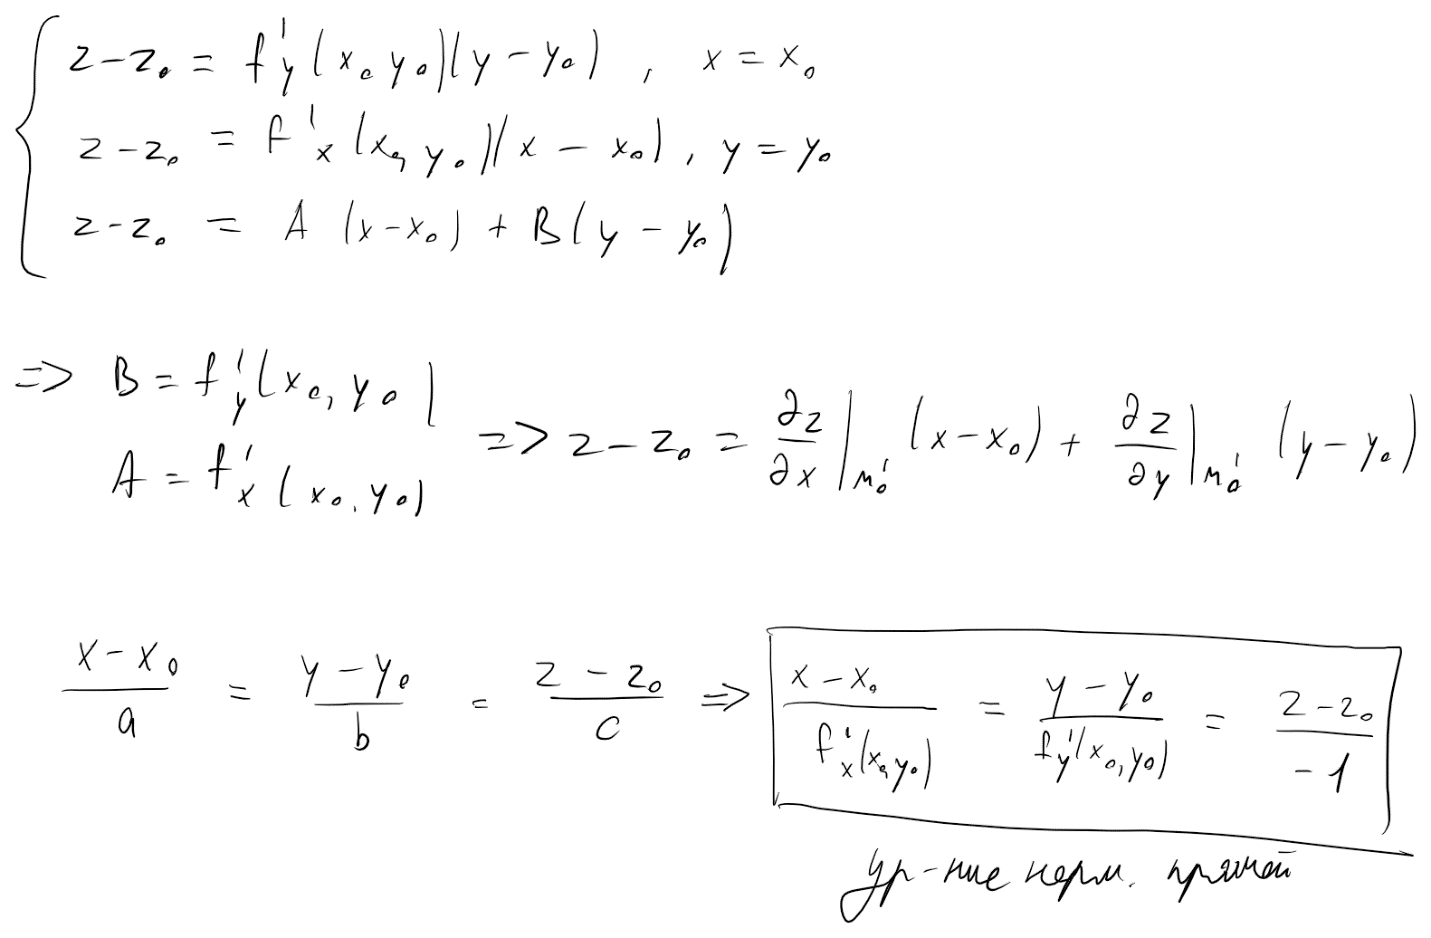 z - z₀ = f'y (x₀ y₀)(y - y₀) , x = x₀
z - z₀ = f'x (x₀, y₀)(x - x₀) , y = y₀
z - z₀ = A (x - x₀) + B(y - y₀)
=> B = f'y (x₀, y₀)
A = f'x (x₀, y₀)
=> z - z₀ = ∂z/∂x |M₀' (x - x₀) + ∂z/∂y |M₀' (y - y₀)
(x - x₀)/a = (y - y₀)/b = (z - z₀)/c => (x - x₀)/f'x(x₀, y₀) = (y - y₀)/f'y(x₀, y₀) = (z - z₀)/-1
ур-ние норм. прямой